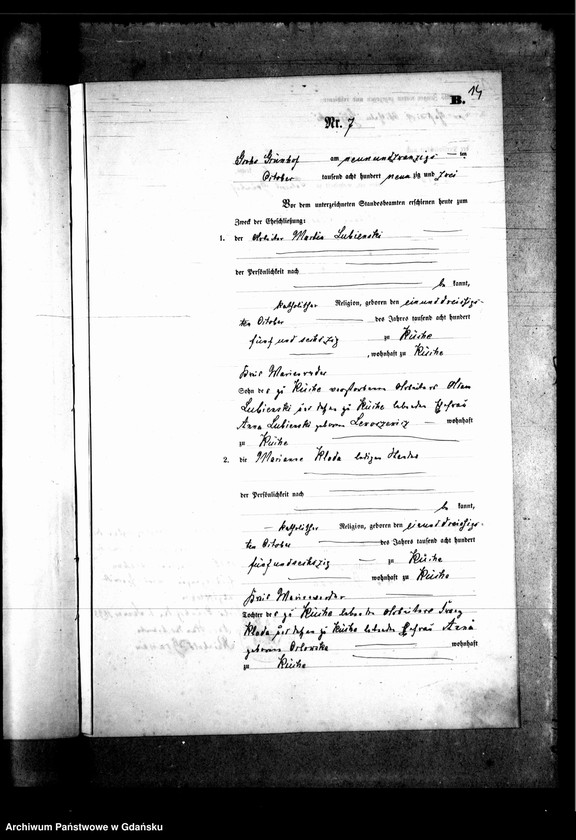 14
B.
Nr. 7
Grünhof am neunundzwanzigs ten
October tausend acht hundert neun zig und zwei
Vor dem unterzeichneten Standesbeamten erschienen heute zum
Zweck der Eheschließung:
1. der Arbeiter Martin Lubienski
der Persönlichkeit nach
be kannt,
katholischer Religion, geboren den einunddreißigs-
ten October des Jahres tausend acht hundert
fünf und sechszig zu Küche
, wohnhaft zu Küche
Kreis Marienwerder
Sohn des zu Küche verstorbenen Arbeiters
Lubienski und dessen zu Küche lebenden Ehefrau
Anna Lubienski geborene wohnhaft
zu Küche
2. die Marianne Kloda ledigen Standes
der Persönlichkeit nach
be kannt,
katholischer Religion, geboren den einunddreißigs-
ten October des Jahres tausend acht hundert
fünfundsechszig zu Küche
wohnhaft zu Küche
Kreis Marienwerder
Tochter des zu Küche lebenden Arbeiters Franz
Kloda und dessen zu Küche lebenden Ehefrau Anna
geborene Orlowska wohnhaft
zu Küche
Archiwum Państwowe w Gdańsku